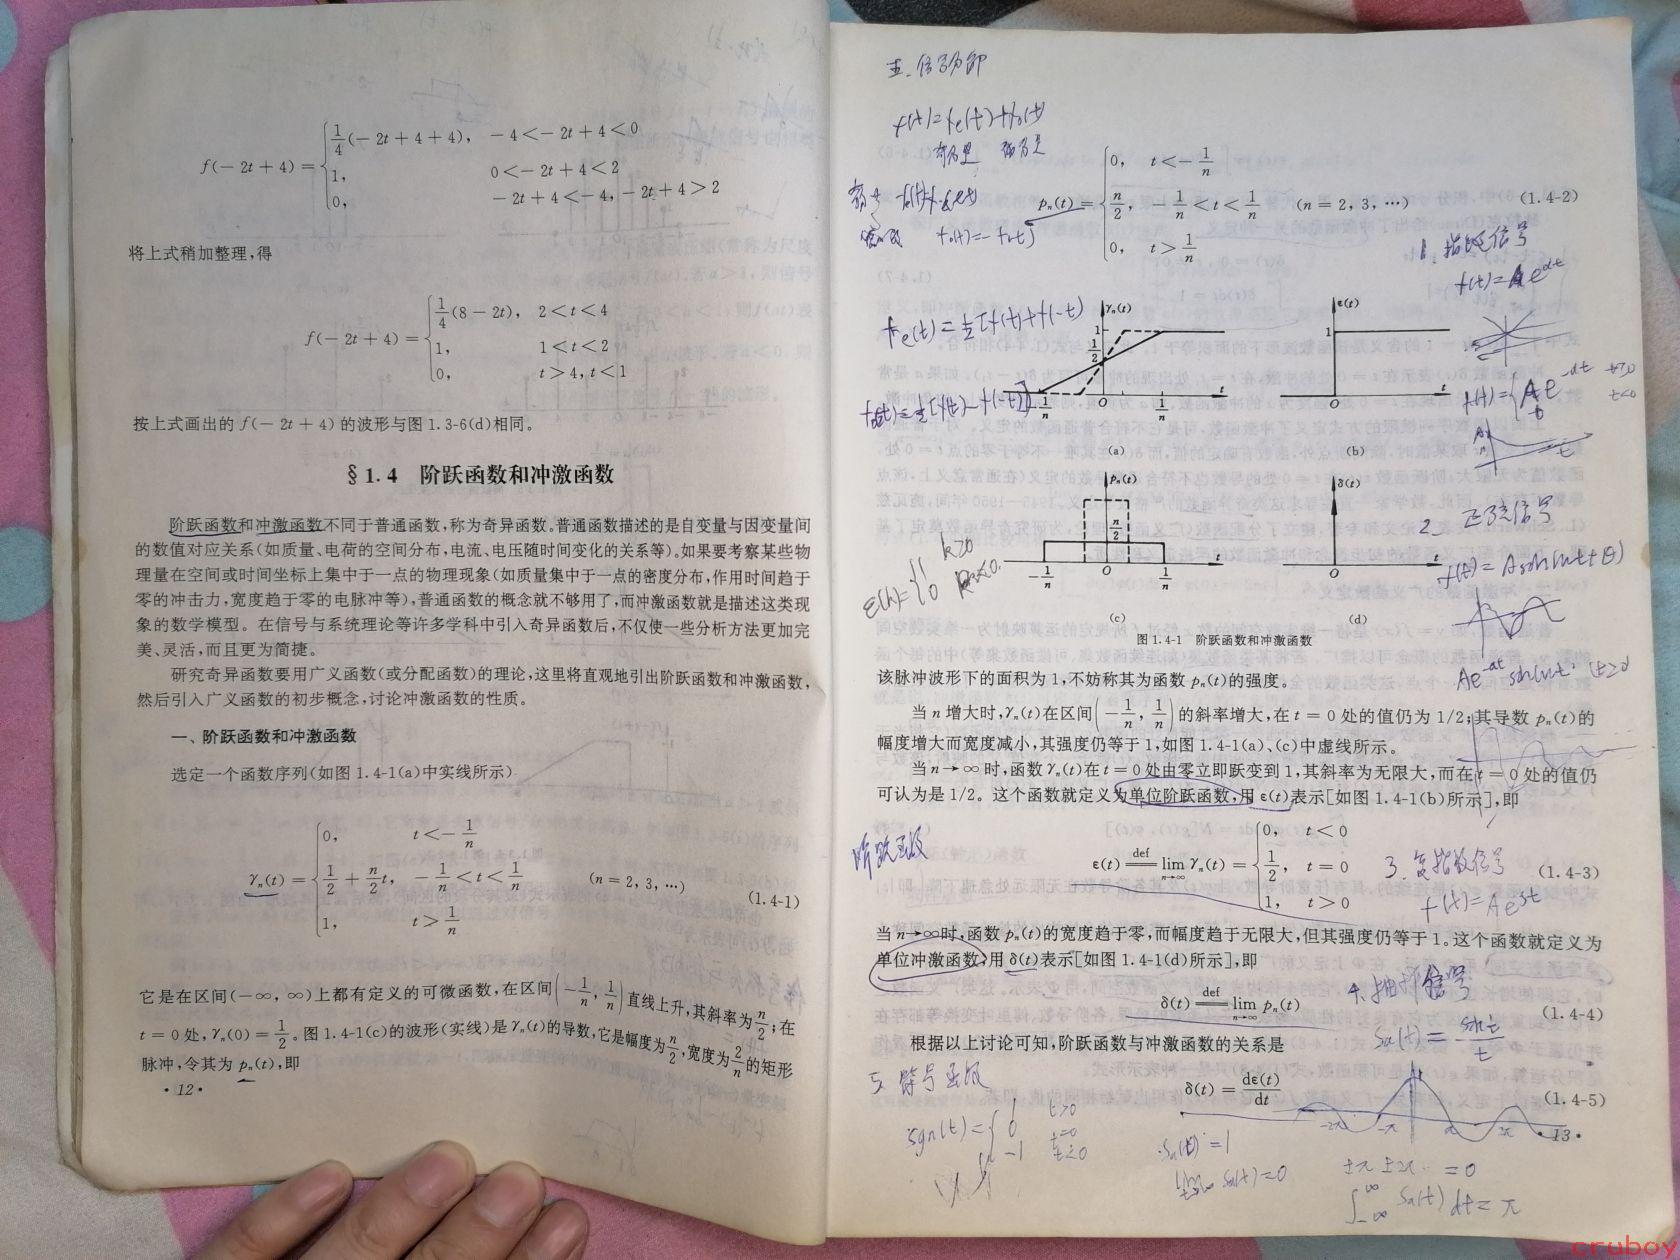 f(-2t+4)= { 1/4(-2t+4+4), -4<-2t+4<0
1, 0<-2t+4<2
0, -2t+4<-4, -2t+4>2
将上式稍加整理,得
f(-2t+4)= { 1/4(8-2t), 2<t<4
1, 1<t<2
0, t>4,t<1
按上式画出的 f(-2t+4)的波形与图1.3-6(d)相同。
§1.4 阶跃函数和冲激函数
阶跃函数和冲激函数不同于普通函数,称为奇异函数。普通函数描述的是自变量与因变量间
的数值对应关系(如质量、电荷的空间分布,电流、电压随时间变化的关系等)。如果要考察某些物
理量在空间或时间坐标上集中于一点的物理现象(如质量集中于一点的密度分布,作用时间趋于
零的冲击力,宽度趋于零的电脉冲等),普通函数的概念就不够用了,而冲激函数就是描述这类现
象的数学模型。在信号与系统理论等许多学科中引入奇异函数后,不仅使一些分析方法更加完
美、灵活,而且更为简捷。
研究奇异函数要用广义函数(或分配函数)的理论,这里将直观地引出阶跃函数和冲激函数,
然后引入广义函数的初步概念,讨论冲激函数的性质。
一、阶跃函数和冲激函数
选定一个函数序列(如图1.4-1(a)中实线所示)
γn(t)= { 0, t<-1/n
1/2+n/2 t, -1/n<t<1/n (n=2,3,…) (1.4-1)
1, t>1/n
它是在区间(-∞,∞)上都有定义的可微函数,在区间(-1/n,1/n)直线上升,其斜率为n/2;在
t=0处,γn(0)=1/2。图1.4-1(c)的波形(实线)是γn(t)的导数,它是幅度为n/2,宽度为2/n的矩形
脉冲,令其为pn(t),即
·12·
五、信号分解
f(t)=fe(t)+fo(t)
pn(t)= { 0, t<-1/n
n/2, -1/n<t<1/n (n=2,3,…) (1.4-2)
0, t>1/n
1. 指数信号
f(t)=Ae^αt
fe(t)=½[f(t)+f(-t)]
γn(t)
1
1/2
-1/n 0 1/n t
(a)
ε(t)
1
0 t
(b)
pn(t)
n/2
-1/n 0 1/n t
(c)
δ(t)
0 t
(d)
ε(k)= { 1 k≥0
0 k<0
2. 正弦信号
f(t)=Asin(ωt+θ)
图1.4-1 阶跃函数和冲激函数
该脉冲波形下的面积为1,不妨称其为函数pn(t)的强度。
当n增大时,γn(t)在区间(-1/n,1/n)的斜率增大,在t=0处的值仍为1/2;其导数pn(t)的
幅度增大而宽度减小,其强度仍等于1,如图1.4-1(a)、(c)中虚线所示。
当n→∞时,函数γn(t)在t=0处由零立即跃变到1,其斜率为无限大,而在t=0处的值仍
可认为是1/2。这个函数就定义为单位阶跃函数,用ε(t)表示[如图1.4-1(b)所示],即
阶跃函数
ε(t) def= lim n→∞ γn(t)= { 0, t<0
1/2, t=0 (1.4-3)
1, t>0
3. 复指数信号
f(t)=Ae^st
当n→∞时,函数pn(t)的宽度趋于零,而幅度趋于无限大,但其强度仍等于1。这个函数就定义为
单位冲激函数,用δ(t)表示[如图1.4-1(d)所示],即
δ(t) def= lim n→∞ pn(t) (1.4-4)
4. 抽样信号
Sa(t)=sint/t
根据以上讨论可知,阶跃函数与冲激函数的关系是
δ(t)=dε(t)/dt (1.4-5)
5. 符号函数
sgn(t)= { 1 t>0
0 t=0
-1 t<0
-2π -π π 2π
·13·
Sa(t)=1
lim t→∞ Sa(t)=0
±π ±2π … =0
∫-∞^∞ Sa(t)dt=π
cruboy